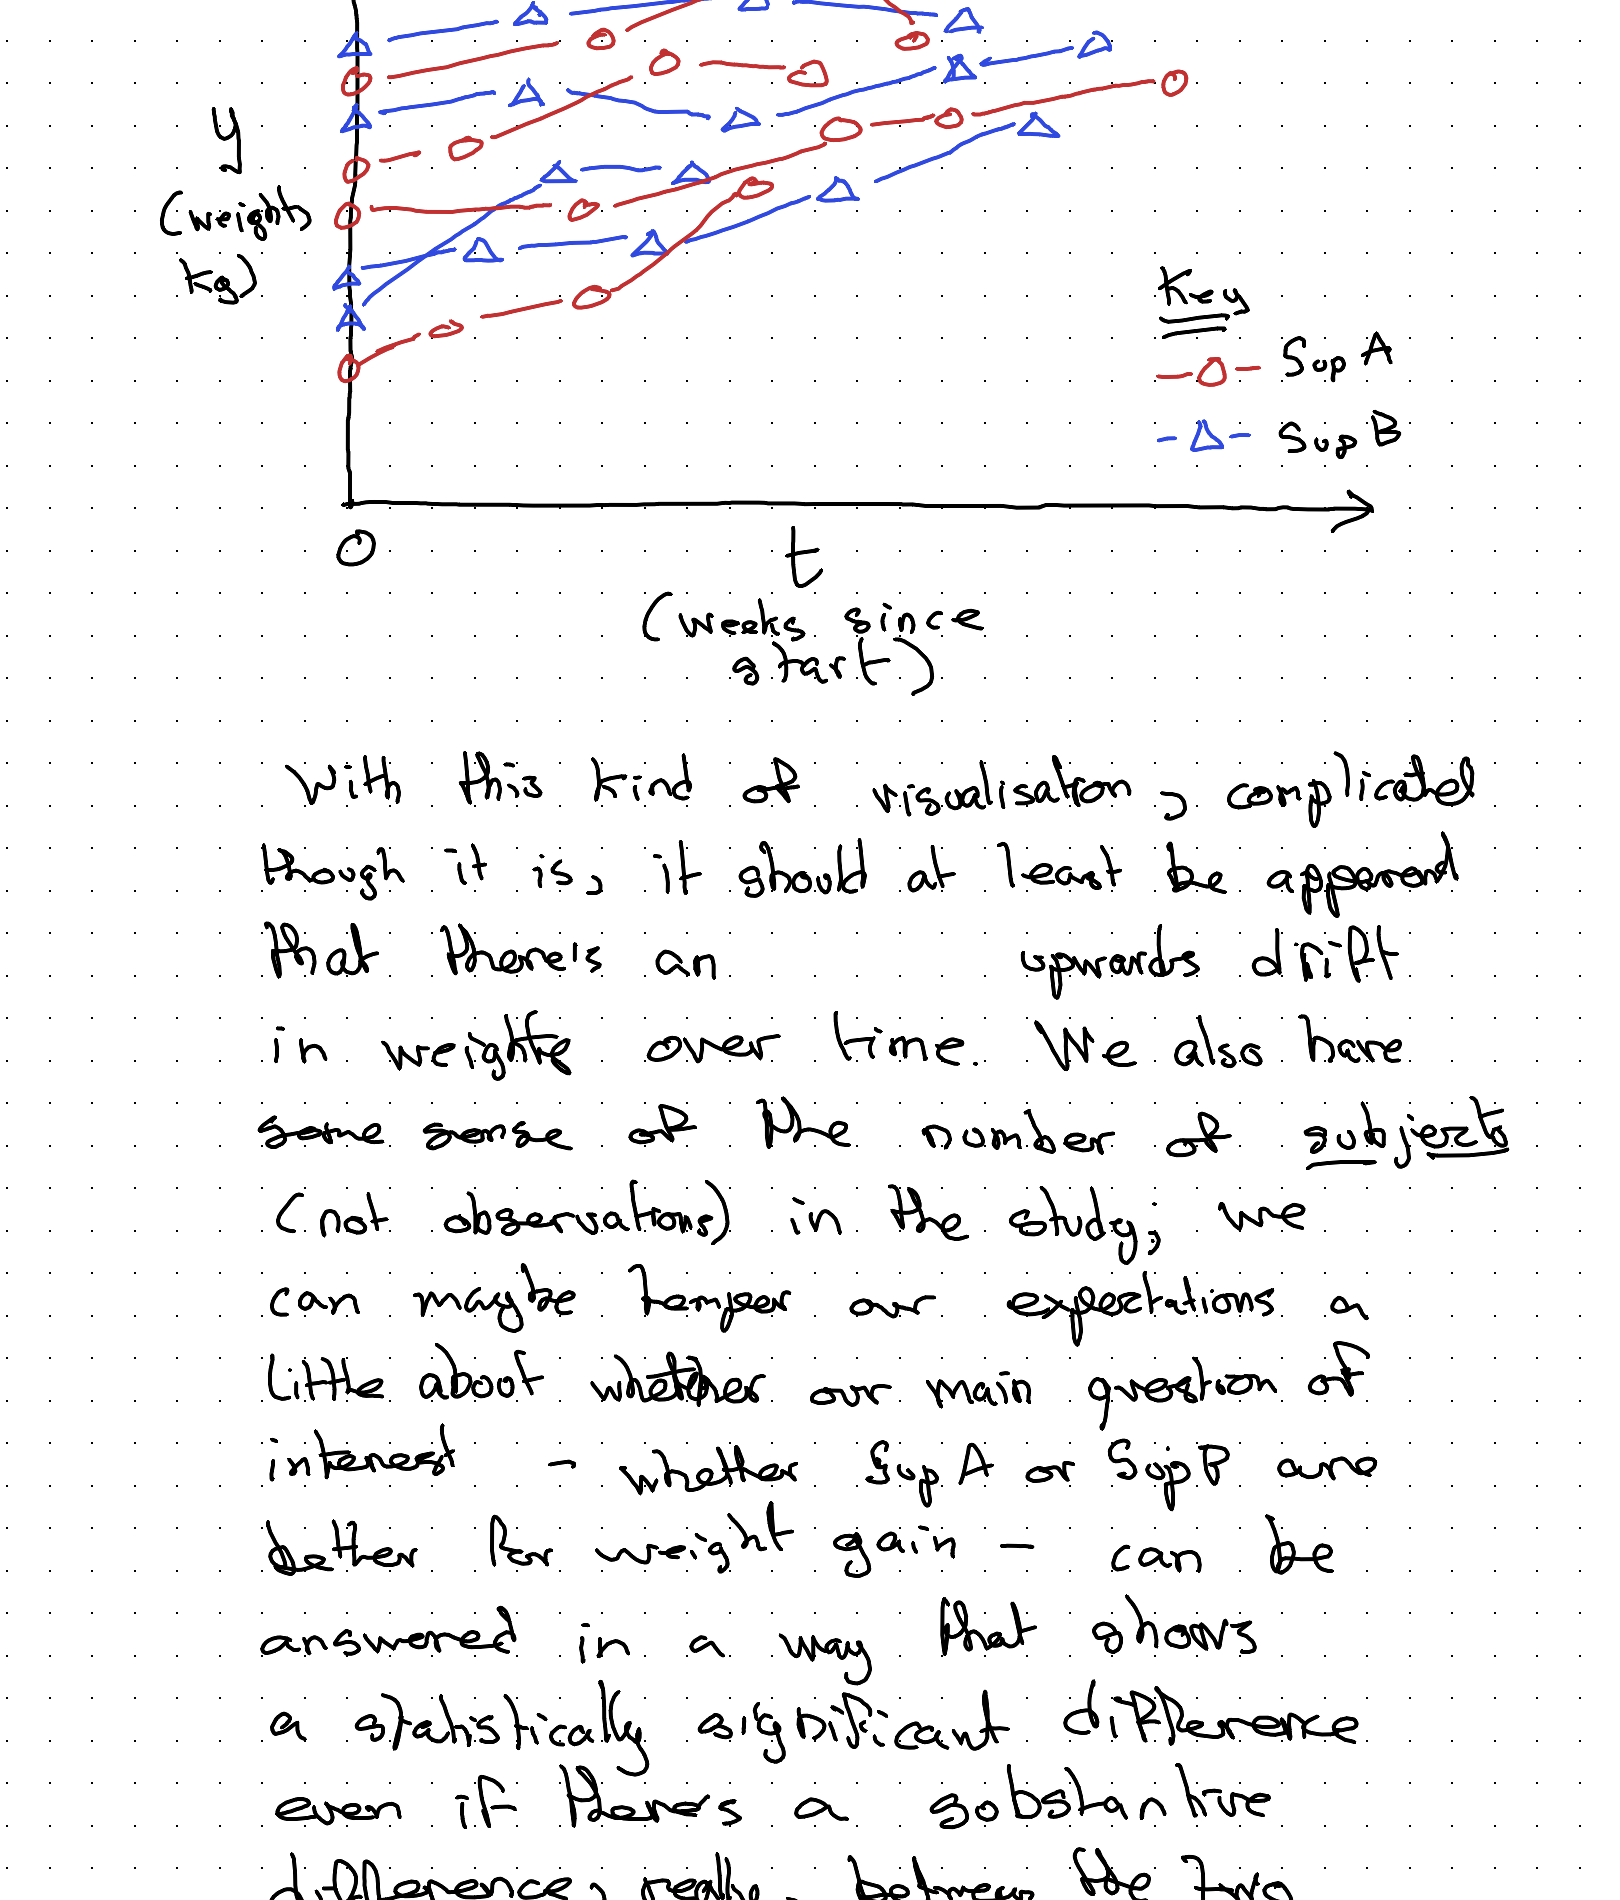 y
(weight,
kg)
Key
Sup A
Sup B
0
t
(weeks since
start)
With this kind of visualisation, complicated
though it is, it should at least be apparent
that there's an upwards drift
in weights over time. We also have
some sense of the number of subjects
(not observations) in the study; we
can maybe temper our expectations a
little about whether our main question of
interest - whether Sup A or Sup B are
better for weight gain - can be
answered in a way that shows
a statistically significant difference
even if there's a substantive
difference, really, between the two